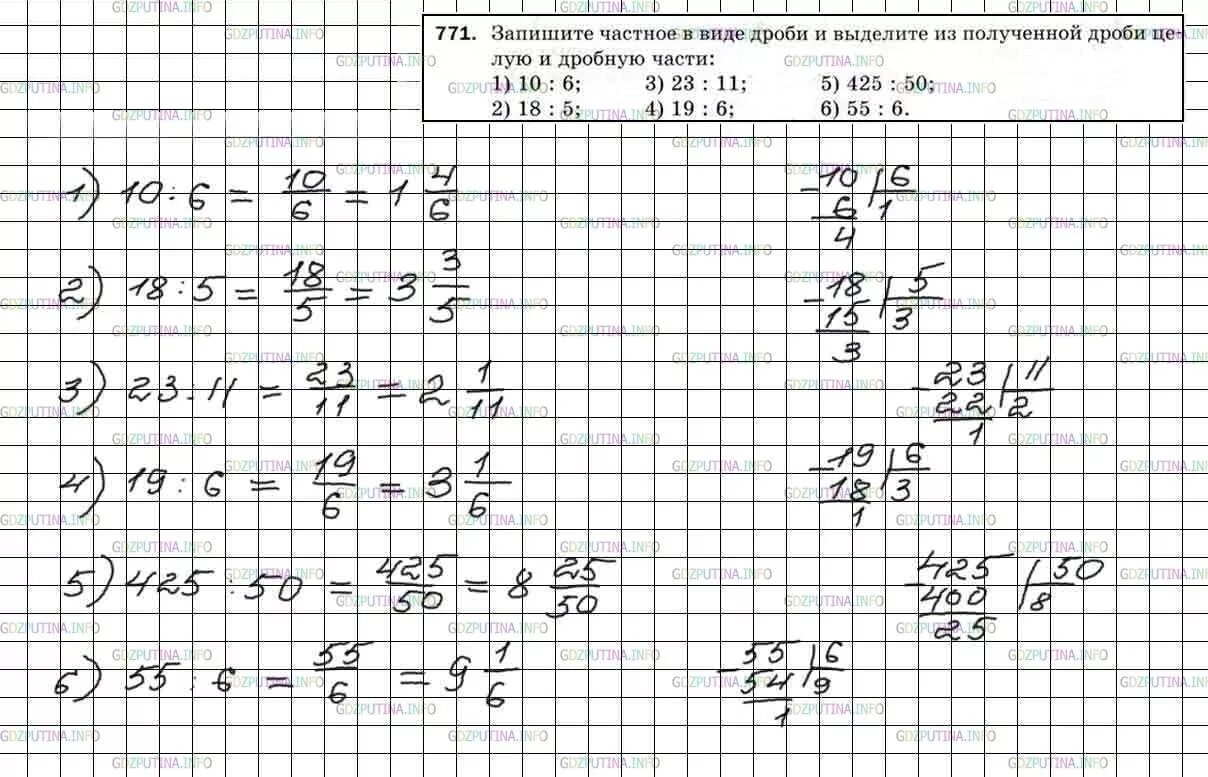 771. Запишите частное в виде дроби и выделите из полученной дроби це-
лую и дробную части:
1) 10 : 6; 3) 23 : 11; 5) 425 : 50;
2) 18 : 5; 4) 19 : 6; 6) 55 : 6.
1) 10 : 6 = 10/6 = 1 4/6
-10 | 6
6 | 1
4
2) 18 : 5 = 18/5 = 3 3/5
-18 | 5
15 | 3
3
3) 23 : 11 = 23/11 = 2 1/11
-23 | 11
22 | 2
1
4) 19 : 6 = 19/6 = 3 1/6
-19 | 6
18 | 3
1
5) 425 : 50 = 425/50 = 8 25/50
-425 | 50
400 | 8
25
6) 55 : 6 = 55/6 = 9 1/6
-55 | 6
54 | 9
1
GDZPUTINA.INFO